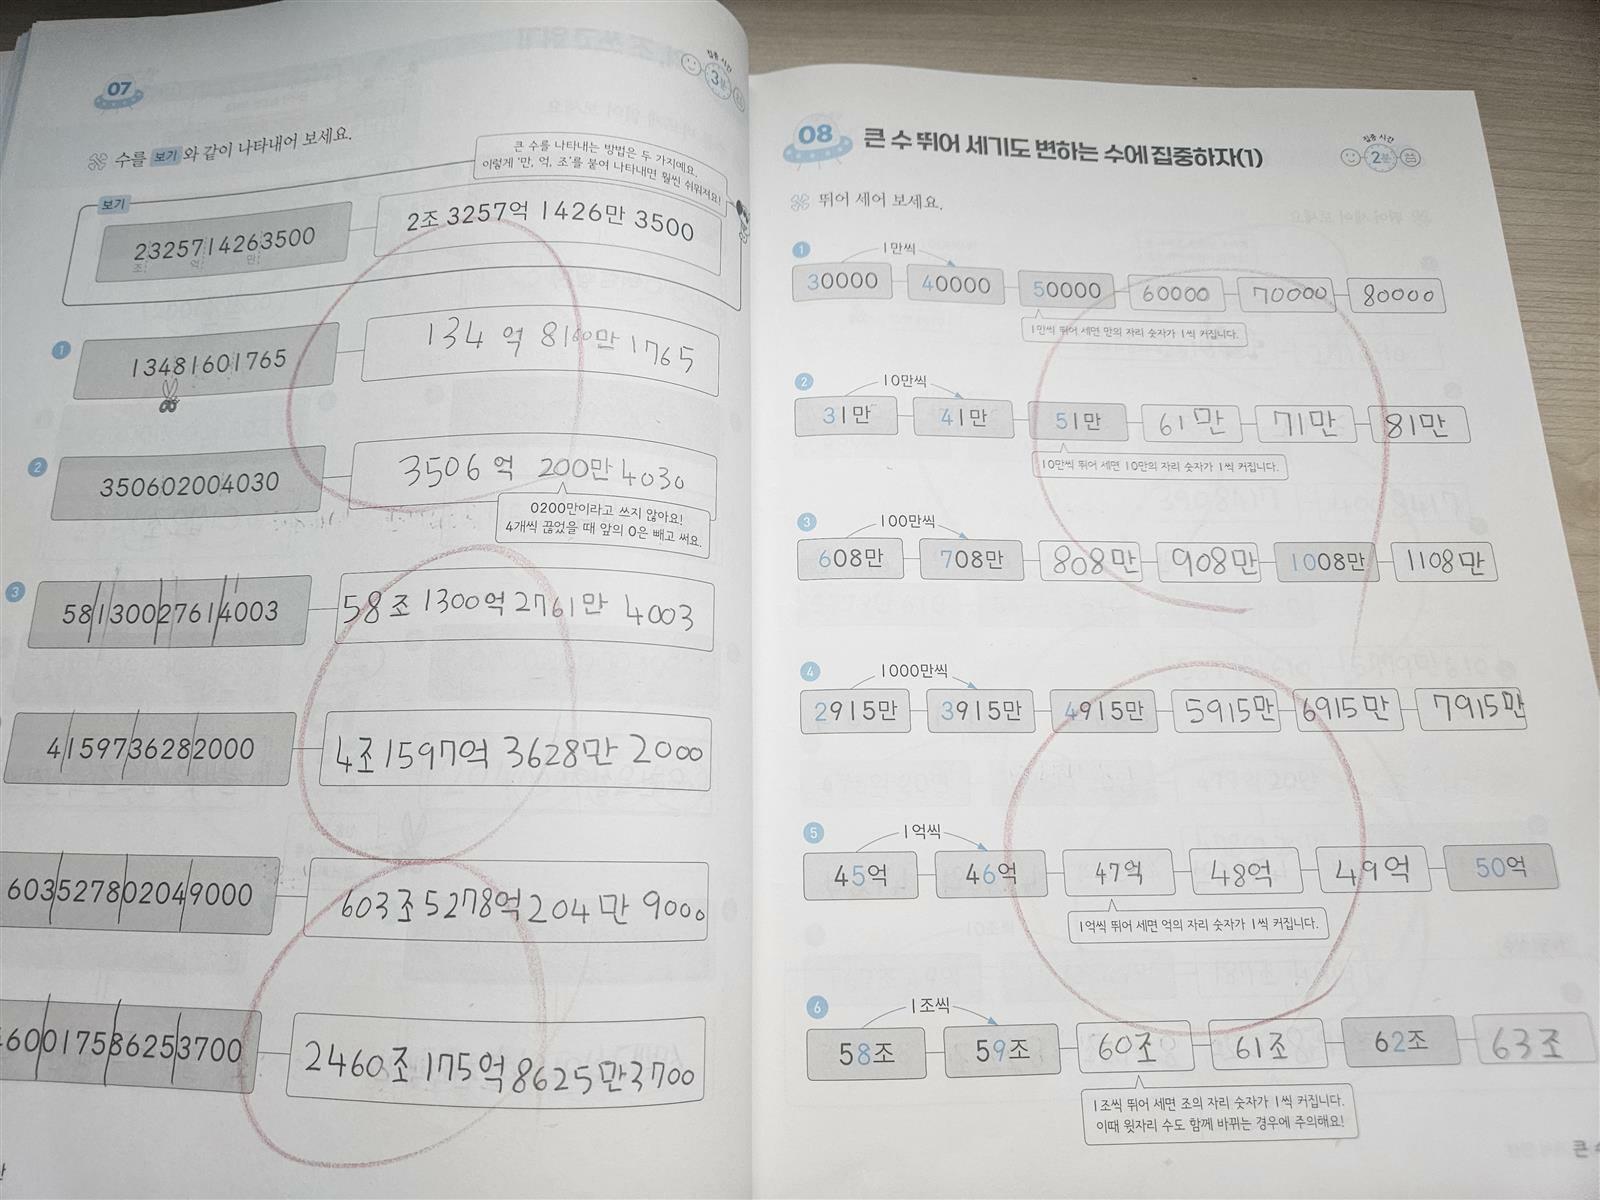 07
집중 시간
3분
수를 보기 와 같이 나타내어 보세요.
큰 수를 나타내는 방법은 두 가지예요.
이렇게 '만, 억, 조'를 붙여 나타내면 훨씬 쉬워져요!
보기
23257142635​00
조 억 만
2조 3257억 1426만 3500
1
13481601765
134 억 8160만 1765
2
350602004030
3506 억 200만 4030
0200만이라고 쓰지 않아요!
4개씩 끊었을 때 앞의 0은 빼고 써요.
3
58130027614003
58조 1300억 2761만 4003
4159736282000
4조 1597억 3628만 2000
603527802049000
603조 5278억 204만 9000
460017586253700
2460조 175억 8625만 3700
08
큰 수 뛰어 세기도 변하는 수에 집중하자(1)
집중 시간
2분
뛰어 세어 보세요.
1
1만씩
30000 40000 50000 60000 70000 80000
1만씩 뛰어 세면 만의 자리 숫자가 1씩 커집니다.
2
10만씩
31만 41만 51만 61만 71만 81만
10만씩 뛰어 세면 10만의 자리 숫자가 1씩 커집니다.
3
100만씩
608만 708만 808만 908만 1008만 1108만
4
1000만씩
2915만 3915만 4915만 5915만 6915만 7915만
5
1억씩
45억 46억 47억 48억 49억 50억
1억씩 뛰어 세면 억의 자리 숫자가 1씩 커집니다.
6
1조씩
58조 59조 60조 61조 62조 63조
1조씩 뛰어 세면 조의 자리 숫자가 1씩 커집니다.
이때 윗자리 수도 함께 바뀌는 경우에 주의해요!
큰 수